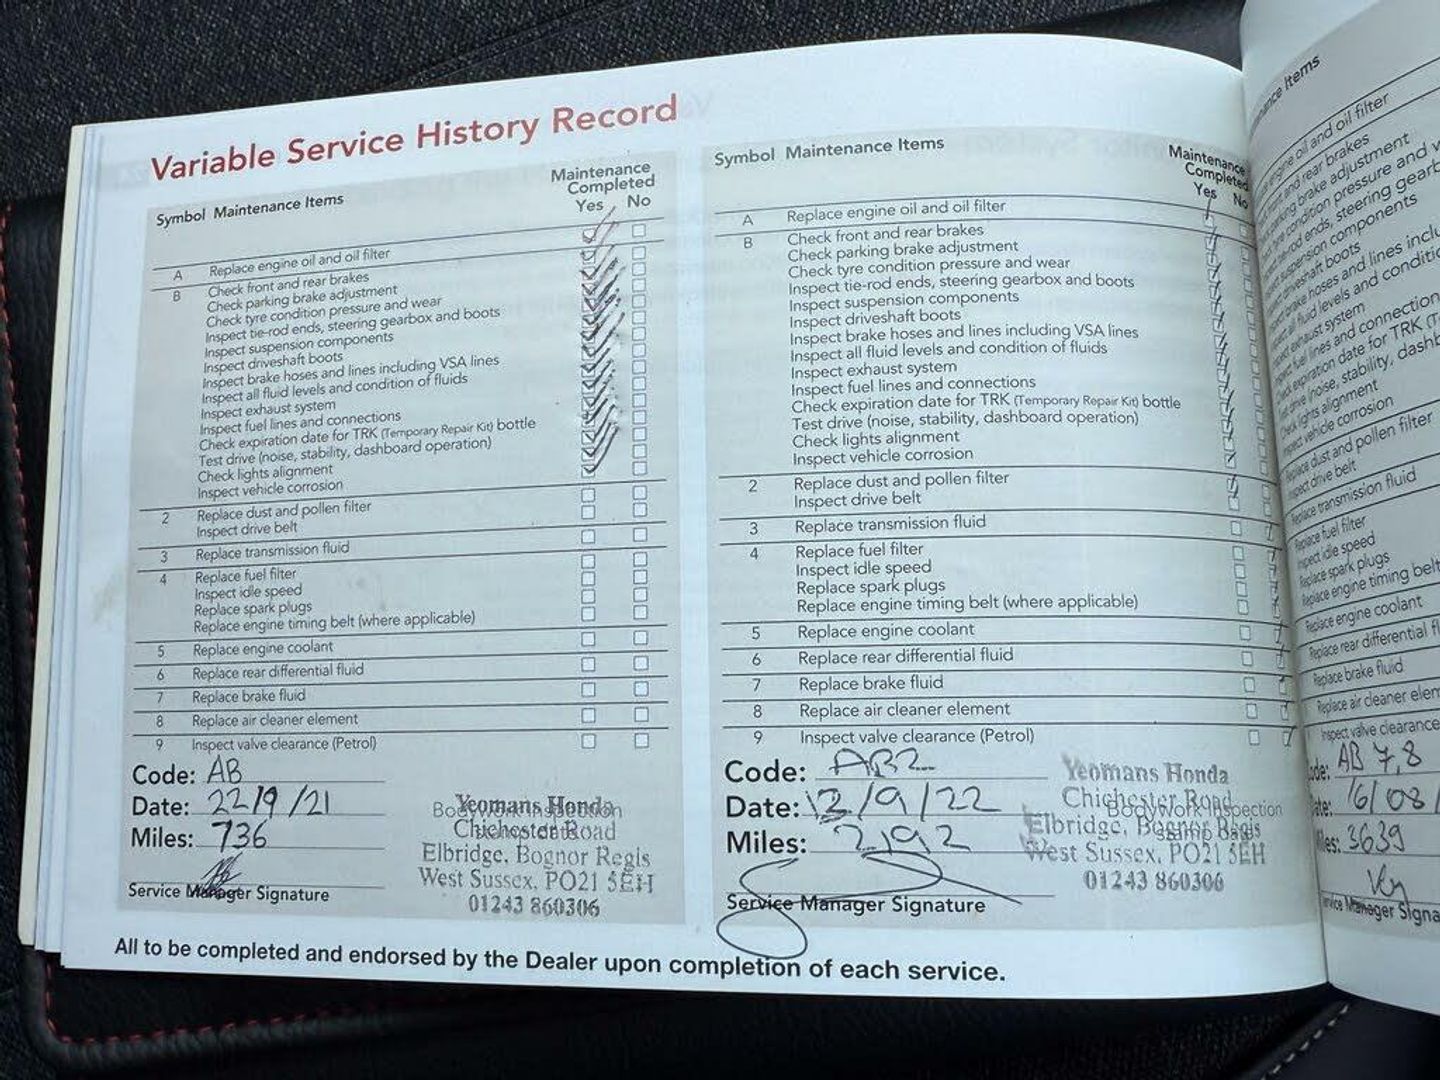 Variable Service History Record
Symbol Maintenance Items
Maintenance
Completed
Yes No
A Replace engine oil and oil filter
B Check front and rear brakes
Check parking brake adjustment
Check tyre condition pressure and wear
Inspect tie-rod ends, steering gearbox and boots
Inspect suspension components
Inspect driveshaft boots
Inspect brake hoses and lines including VSA lines
Inspect all fluid levels and condition of fluids
Inspect exhaust system
Inspect fuel lines and connections
Check expiration date for TRK (Temporary Repair Kit) bottle
Test drive (noise, stability, dashboard operation)
Check lights alignment
Inspect vehicle corrosion
2 Replace dust and pollen filter
Inspect drive belt
3 Replace transmission fluid
4 Replace fuel filter
Inspect idle speed
Replace spark plugs
Replace engine timing belt (where applicable)
5 Replace engine coolant
6 Replace rear differential fluid
7 Replace brake fluid
8 Replace air cleaner element
9 Inspect valve clearance (Petrol)
Code: AB
Date: 22/9/21
Miles: 736
Service Manager Signature
Yeomans Honda
Bodywork Inspection
Chichester Road
Elbridge, Bognor Regis
West Sussex, PO21 5EH
01243 860306
Symbol Maintenance Items
Maintenance
Completed
Yes No
A Replace engine oil and oil filter
B Check front and rear brakes
Check parking brake adjustment
Check tyre condition pressure and wear
Inspect tie-rod ends, steering gearbox and boots
Inspect suspension components
Inspect driveshaft boots
Inspect brake hoses and lines including VSA lines
Inspect all fluid levels and condition of fluids
Inspect exhaust system
Inspect fuel lines and connections
Check expiration date for TRK (Temporary Repair Kit) bottle
Test drive (noise, stability, dashboard operation)
Check lights alignment
Inspect vehicle corrosion
2 Replace dust and pollen filter
Inspect drive belt
3 Replace transmission fluid
4 Replace fuel filter
Inspect idle speed
Replace spark plugs
Replace engine timing belt (where applicable)
5 Replace engine coolant
6 Replace rear differential fluid
7 Replace brake fluid
8 Replace air cleaner element
9 Inspect valve clearance (Petrol)
Code: AB2
Date: 12/9/22
Miles: 2192
Service Manager Signature
Yeomans Honda
Chichester Road
Bodywork Inspection
Elbridge, Bognor Regis
West Sussex, PO21 5EH
01243 860306
All to be completed and endorsed by the Dealer upon completion of each service.
Items
engine oil and oil filter
and rear brakes
brake adjustment
condition pressure and
ends, steering
suspension components
driveshaft boots
brake hoses and lines
all fluid levels and
exhaust system
fuel lines and connection
expiration date for TRK
(noise, stability,
lights alignment
vehicle corrosion
dust and pollen filter
drive belt
Replace transmission fluid
Replace fuel filter
Inspect idle speed
Replace spark plugs
Replace engine timing belt
Replace engine coolant
Replace rear differential
Replace brake fluid
Replace air cleaner
Inspect valve clearance
AB 7,8
16/08/
3639
Manager